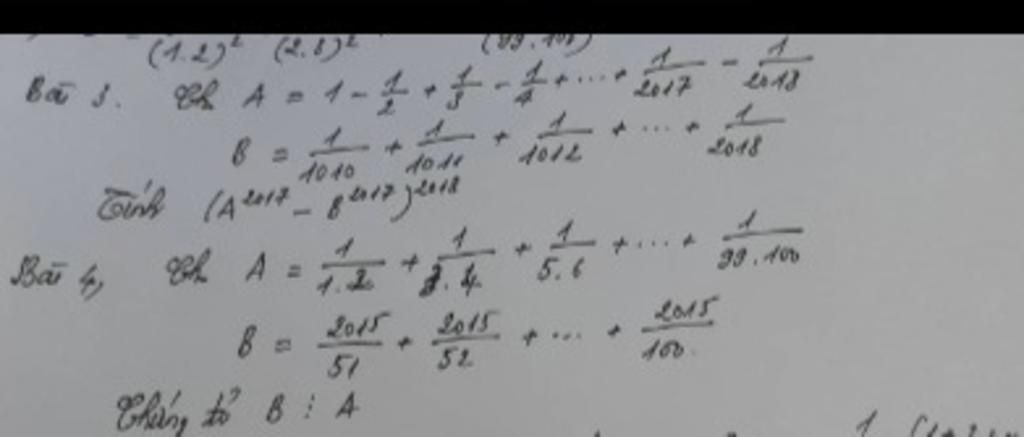 (1.2)² (2.3)² (99.100)
Bài 3. Ch A = 1 - 1/2 + 1/3 - 1/4 + ... + 1/2017 - 1/2018
B = 1/1010 + 1/1011 + 1/1012 + ... + 1/2018
Tính (A^2017 - B^2017)^2018
Bài 4, Ch A = 1/1.2 + 1/3.4 + 1/5.6 + ... + 1/99.100
B = 2015/51 + 2015/52 + ... + 2015/100
Chứng tỏ B ⋮ A